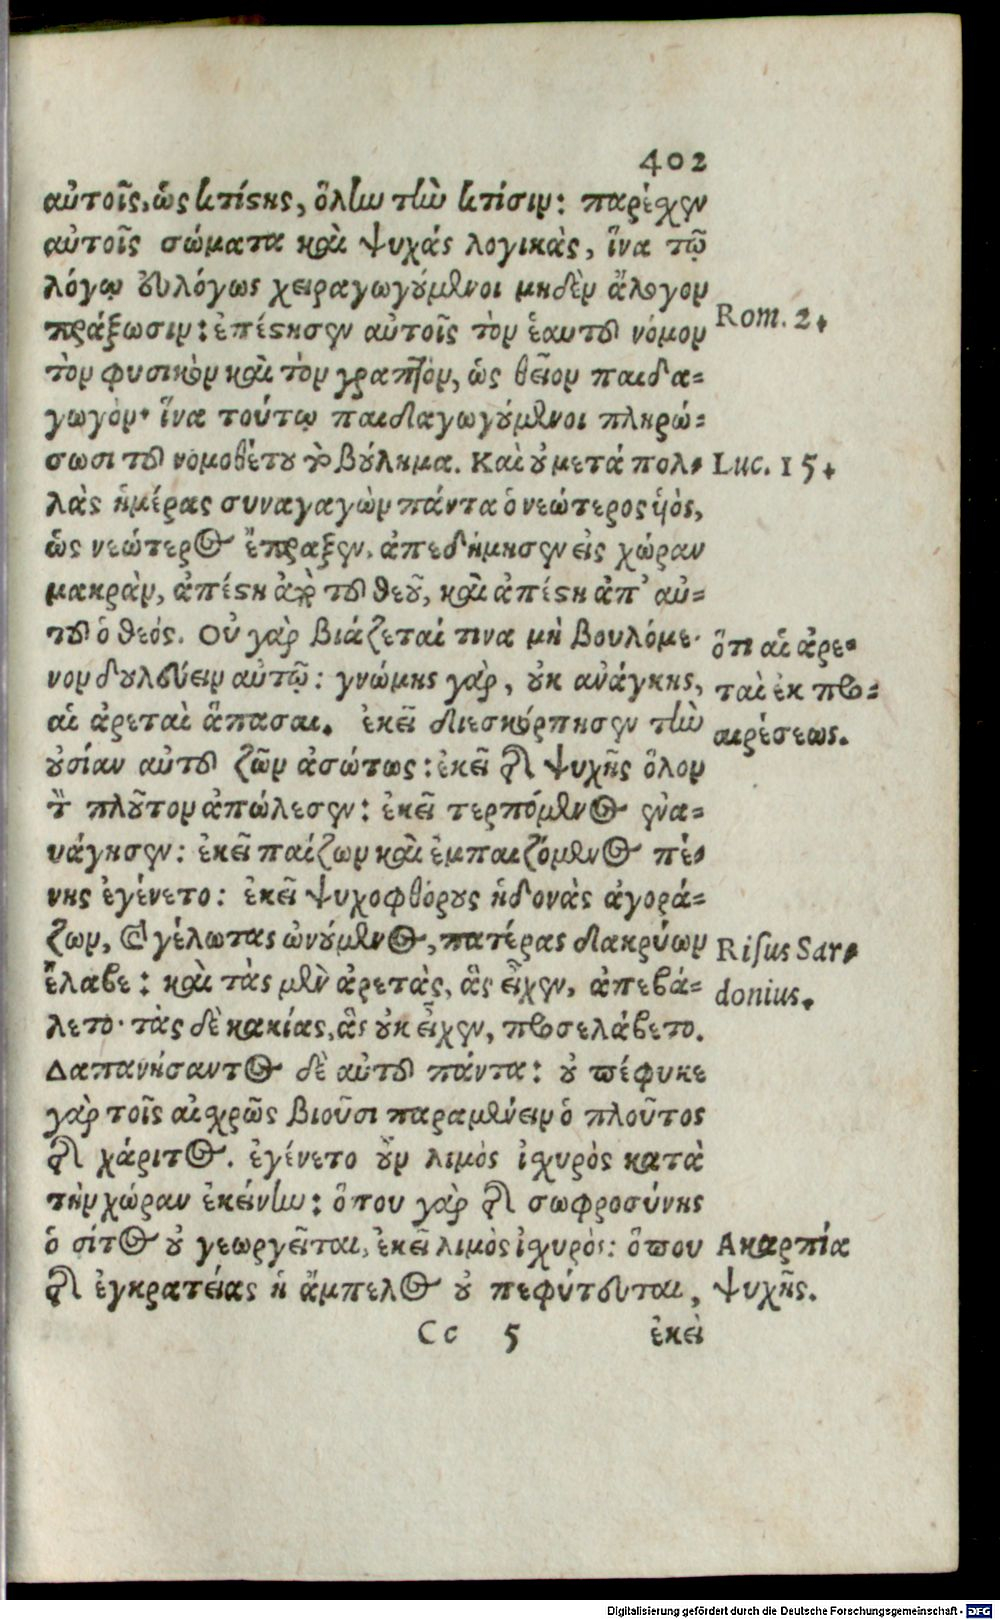 402
αὐτοῖς, ὡς κτίστης, ὅλην τὴν κτίσιν: παρέχεν
αὐτοῖς σώματα καὶ ψυχάς λογικὰς, ἵνα τῷ
λόγῳ εὐλόγως χειραγωγούμενοι μηδὲν ἄλογον
πράξωσιν: ἐπέστησεν αὐτοῖς τὸν ἑαυτοῦ νόμον
Rom. 2.
τὸν φυσικὸν καὶ τὸν γραπτὸν, ὡς θεῖον παιδα-
γωγὸν· ἵνα τούτῳ παιδαγωγούμενοι πληρώ-
σωσι τοῦ νομοθέτου τὸ βούλημα. Καὶ οὐ μετά πολ-
Luc. 15.
λὰς ἡμέρας συναγαγὼν πάντα ὁ νεώτερος υἱὸς,
ὡς νεώτερος ἔπραξεν. ἀπεδήμησεν εἰς χώραν
μακρὰν, ἀπέστη ἀπὸ τοῦ θεοῦ, καὶ ἀπέστη ἀπ' αὐ-
τοῦ ὁ θεός. Οὐ γὰρ βιάζεταί τινα μὴ βουλόμε-
ὅτι αἱ ἀρε-
νον δουλεύειν αὐτῷ: γνώμης γὰρ, οὐκ ανάγκης,
ταὶ ἐκ προ-
αἱ ἀρεταὶ ἅπασαι. ἐκεῖ διεσκόρπησεν τὴν
αιρέσεως.
οὐσίαν αὐτοῦ ζῶν ἀσώτως: ἐκεῖ τῆς ψυχῆς ὅλον
τ πλοῦτον ἀπώλεσεν: ἐκεῖ τερπόμενος ἐνα-
υάγησεν: ἐκεῖ παίζων καὶ ἐμπαιζόμενος πέ-
νης ἐγένετο: ἐκεῖ ψυχοφθόρους ἡδονὰς ἀγορά-
ζων, καὶ γέλωτας ὠνούμενος, πατέρας δακρύων
Risus Sar-
ἔλαβε: καὶ τὰς μὲν ἀρετὰς, ἃς εἶχεν, ἀπεβά-
donius.
λετο· τὰς δὲ κακίας, ἃς οὐκ εἶχεν, προσελάβετο.
Δαπανήσαντος δὲ αὐτοῦ πάντα: οὐ πέφυκε
γὰρ τοῖς αἰσχρῶς βιοῦσι παραμένειν ὁ πλοῦτος
τῆς χάριτος. ἐγένετο οὖν λιμὸς ἰσχυρὸς κατὰ
τὴν χώραν ἐκείνην: ὅπου γὰρ τῆς σωφροσύνης
ὁ σίτος οὐ γεωργεῖται, ἐκεῖ λιμὸς ἰσχυρὸς: ὅπου
Ακαρπία
τῆς ἐγκρατείας ἡ ἄμπελος οὐ πεφύτευται,
ψυχῆς.
Cc 5 ἐκεὶ
Digitalisierung gefördert durch die Deutsche Forschungsgemeinschaft - DFG